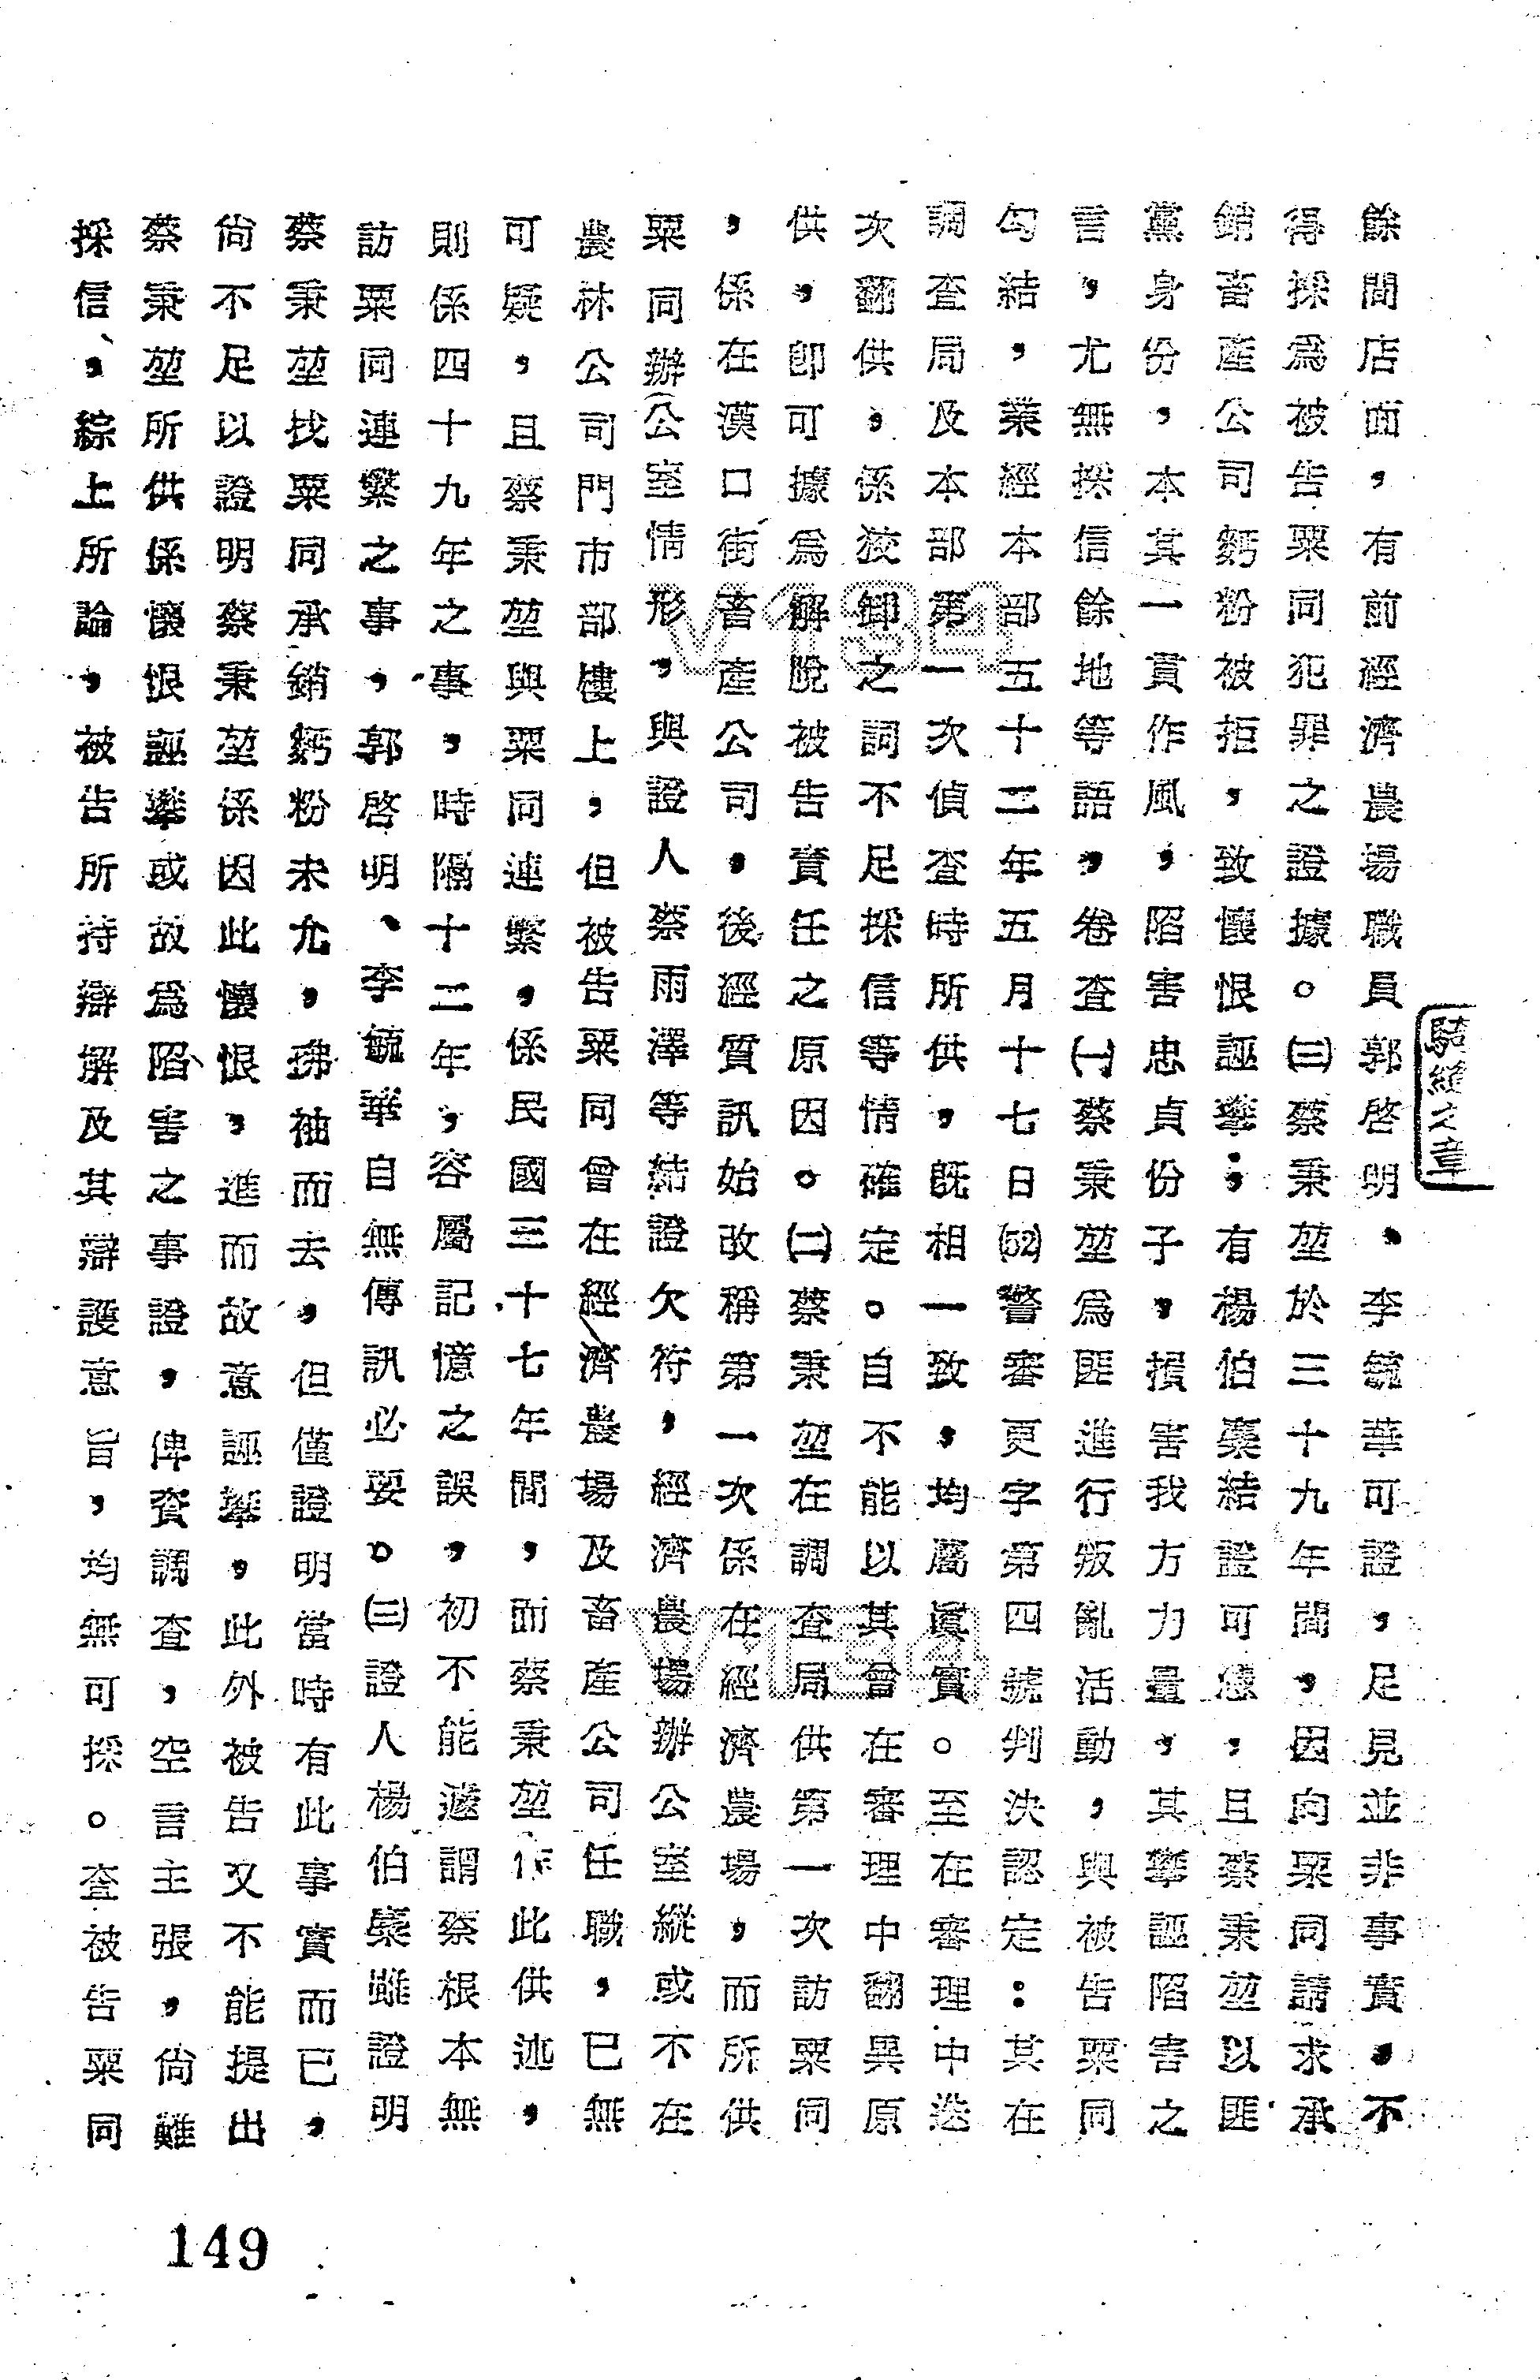 騎縫之章
餘間店面,有前經濟農場職員郭啓明、李毓華可證,足見並非事實,不
得採爲被告粟同犯罪之證據。㈢蔡秉堃於三十九年間,因向粟同請求承
銷畜產公司麪粉被拒,致懷恨誣攀;有楊伯藥結證可憑,且蔡秉堃以匪
黨身份,本其一貫作風,陷害忠貞份子,損害我方力量,其攀誣陷害之
言,尤無採信餘地等語,卷查㈠蔡秉堃爲匪進行叛亂活動,與被告粟同
勾結,業經本部五十二年五月十七日(52)警審更字第四號判決認定:其在
調查局及本部第一次偵查時所供,旣相一致,均屬眞實。至在審理中迭
次翻供,係狡卸之詞不足採信等情,確定。自不能以其曾在審理中翻異原
供,卽可據爲解脫被告責任之原因。㈡蔡秉堃在調查局供第一次訪粟同
,係在漢口街畜產公司,後經質訊始改稱第一次係在經濟農場,而所供
粟同辦公室情形,與證人蔡雨澤等結證欠符,經濟農場辦公室縱或不在
農林公司門市部樓上,但被告粟同曾在經濟農場及畜產公司任職,已無
可疑,且蔡秉堃與粟同連繫,係民國三十七年間,而蔡秉堃作此供述,
則係四十九年之事,時隔十二年,容屬記憶之誤,初不能遽謂蔡根本無
訪粟同連繫之事,郭啓明、李毓華自無傳訊必要。㈢證人楊伯藥雖證明
蔡秉堃找粟同承銷麪粉未允,拂袖而去,但僅證明當時有此事實而已,
尙不足以證明蔡秉堃係因此懷恨,進而故意誣攀,此外被告又不能提出
蔡秉堃所供係懷恨誣攀或故爲陷害之事證,俾資調查,空言主張,尙難
採信,綜上所論,被告所持辯解及其辯護意旨,均無可採。查被告粟同
149
V134
V134